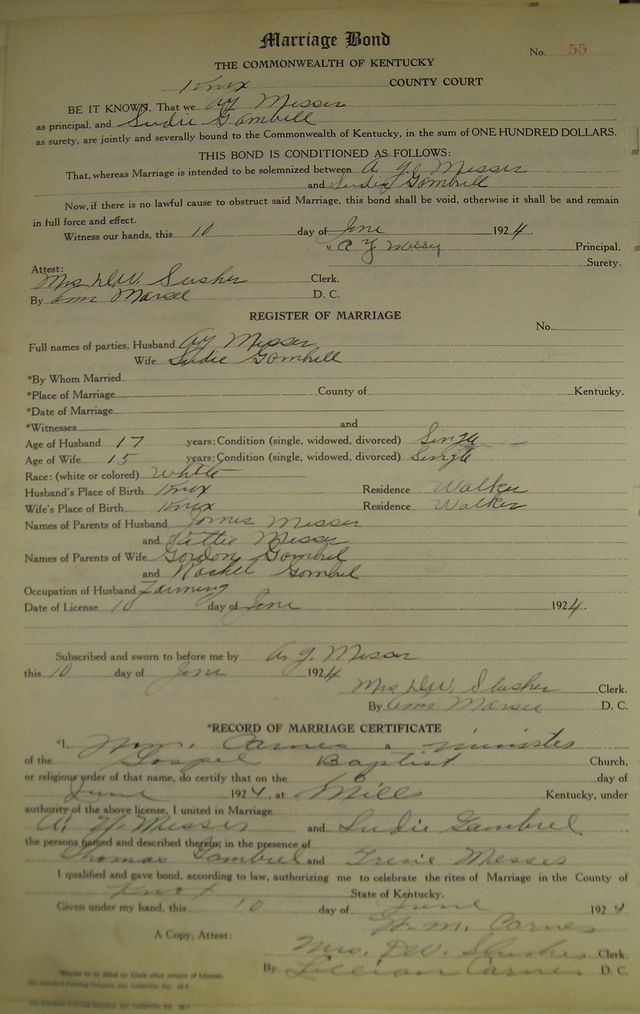 Marriage Bond
No. 55
THE COMMONWEALTH OF KENTUCKY
Knox COUNTY COURT
BE IT KNOWN, That we AY Messer
as principal, and Sudie Gambrell
as surety, are jointly and severally bound to the Commonwealth of Kentucky, in the sum of ONE HUNDRED DOLLARS.
THIS BOND IS CONDITIONED AS FOLLOWS:
That, whereas Marriage is intended to be solemnized between A Y Messer
and Sudie Gombrell
Now, if there is no lawful cause to obstruct said Marriage, this bond shall be void, otherwise it shall be and remain
in full force and effect.
Witness our hands, this 10 day of June 1924.
A Y Messer Principal.
Surety.
Attest:
Mrs D.W. Slusher Clerk.
By Ann Marsee D. C.
REGISTER OF MARRIAGE
No.
Full names of parties, Husband AY Messer
Wife Sudie Gombrell
*By Whom Married
*Place of Marriage County of Kentucky.
*Date of Marriage
*Witnesses and
Age of Husband 17 years; Condition (single, widowed, divorced) Single
Age of Wife 15 years; Condition (single, widowed, divorced) Single
Race: (white or colored) White
Husband's Place of Birth Knox Residence Walker
Wife's Place of Birth Knox Residence Walker
Names of Parents of Husband James Messer
and Messer
Names of Parents of Wife Gordon Gombrel
and Rachel Gombrel
Occupation of Husband Farming
Date of License 10 day of June 1924.
Subscribed and sworn to before me by A. Y. Messer
this 10 day of June 1924
Mrs D.W. Slusher Clerk.
By Ann Marsee D. C.
*RECORD OF MARRIAGE CERTIFICATE
*I, Wm. Carnes a minister
of the Gospel Baptist Church,
or religious order of that name, do certify that on the day of
June 1924, at Mills Kentucky, under
authority of the above license, I united in Marriage
A. Y. Messer and Sudie Gambrel
the persons named and described therein; in the presence of
Thomas Gambrel and Messer
I qualified and gave bond, according to law, authorizing me to celebrate the rites of Marriage in the County of
Knox State of Kentucky.
Given under my hand, this 10 day of June 1924
W. M. Carnes
A Copy, Attest: Mrs. D.W. Slusher Clerk.
By Lillian Carnes D. C.